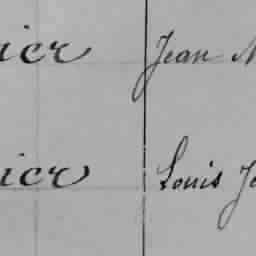 ier Jean
ier Louis